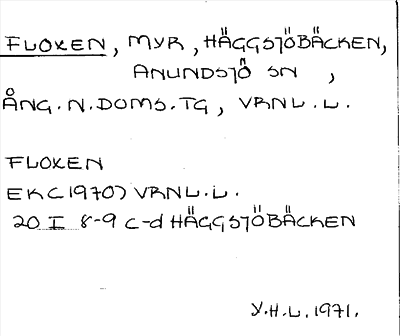 FLOKEN, MYR, HÄGGSJÖBÄCKEN,
ANUNDSJÖ SN ,
ÅNG.N.DOMS.TG, VRNL.L.
FLOKEN
EK(1970) VRNL.L.
20 I 8-9 c-d HÄGGSJÖBÄCKEN
Y.H.L. 1971.